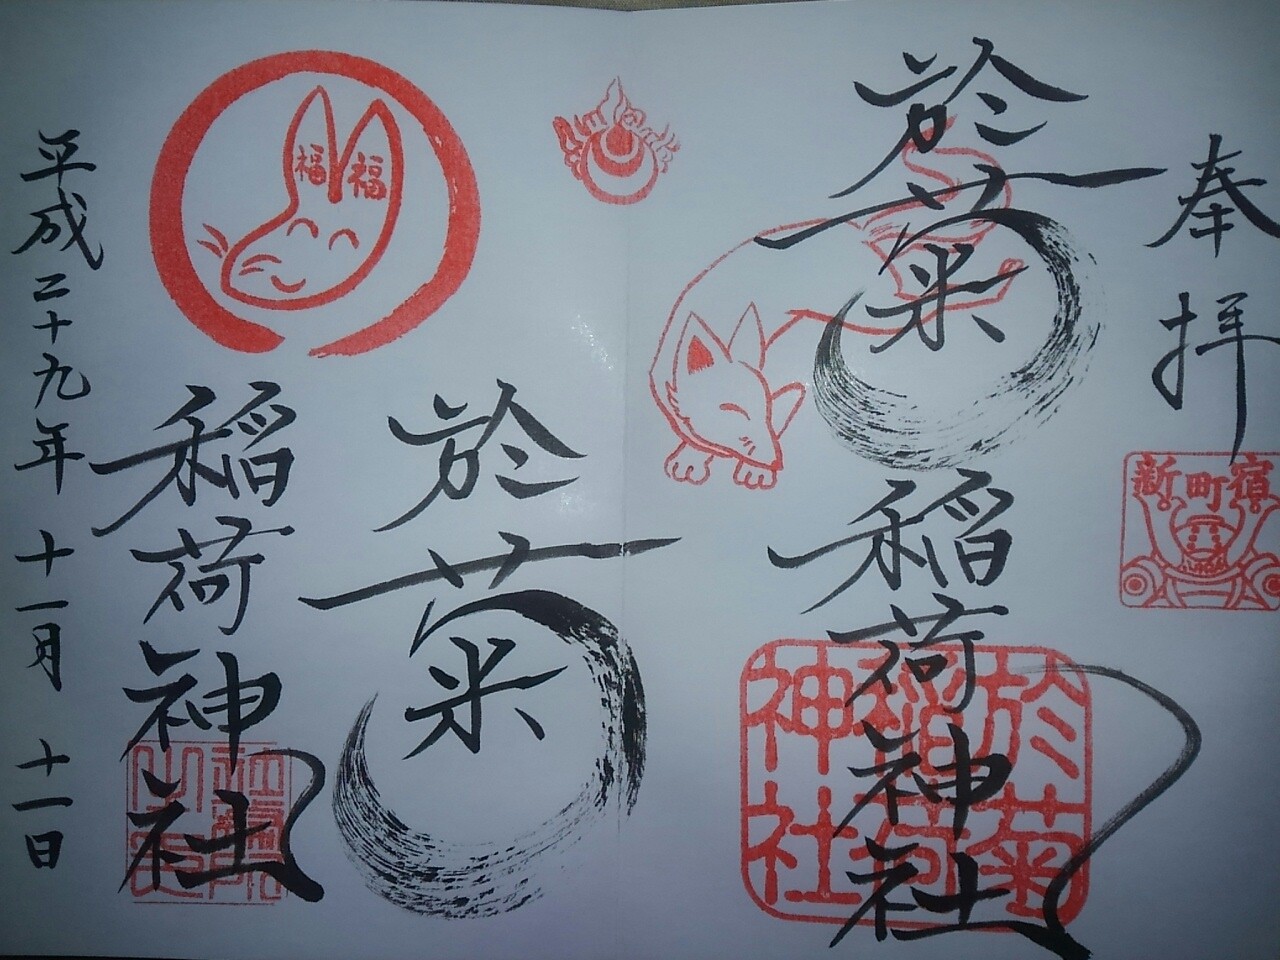 奉拝
新町宿
於菊
稲荷神社
於菊
稲荷
神社
福福
於菊
稲荷神社
平成二十九年 十一月 十一日